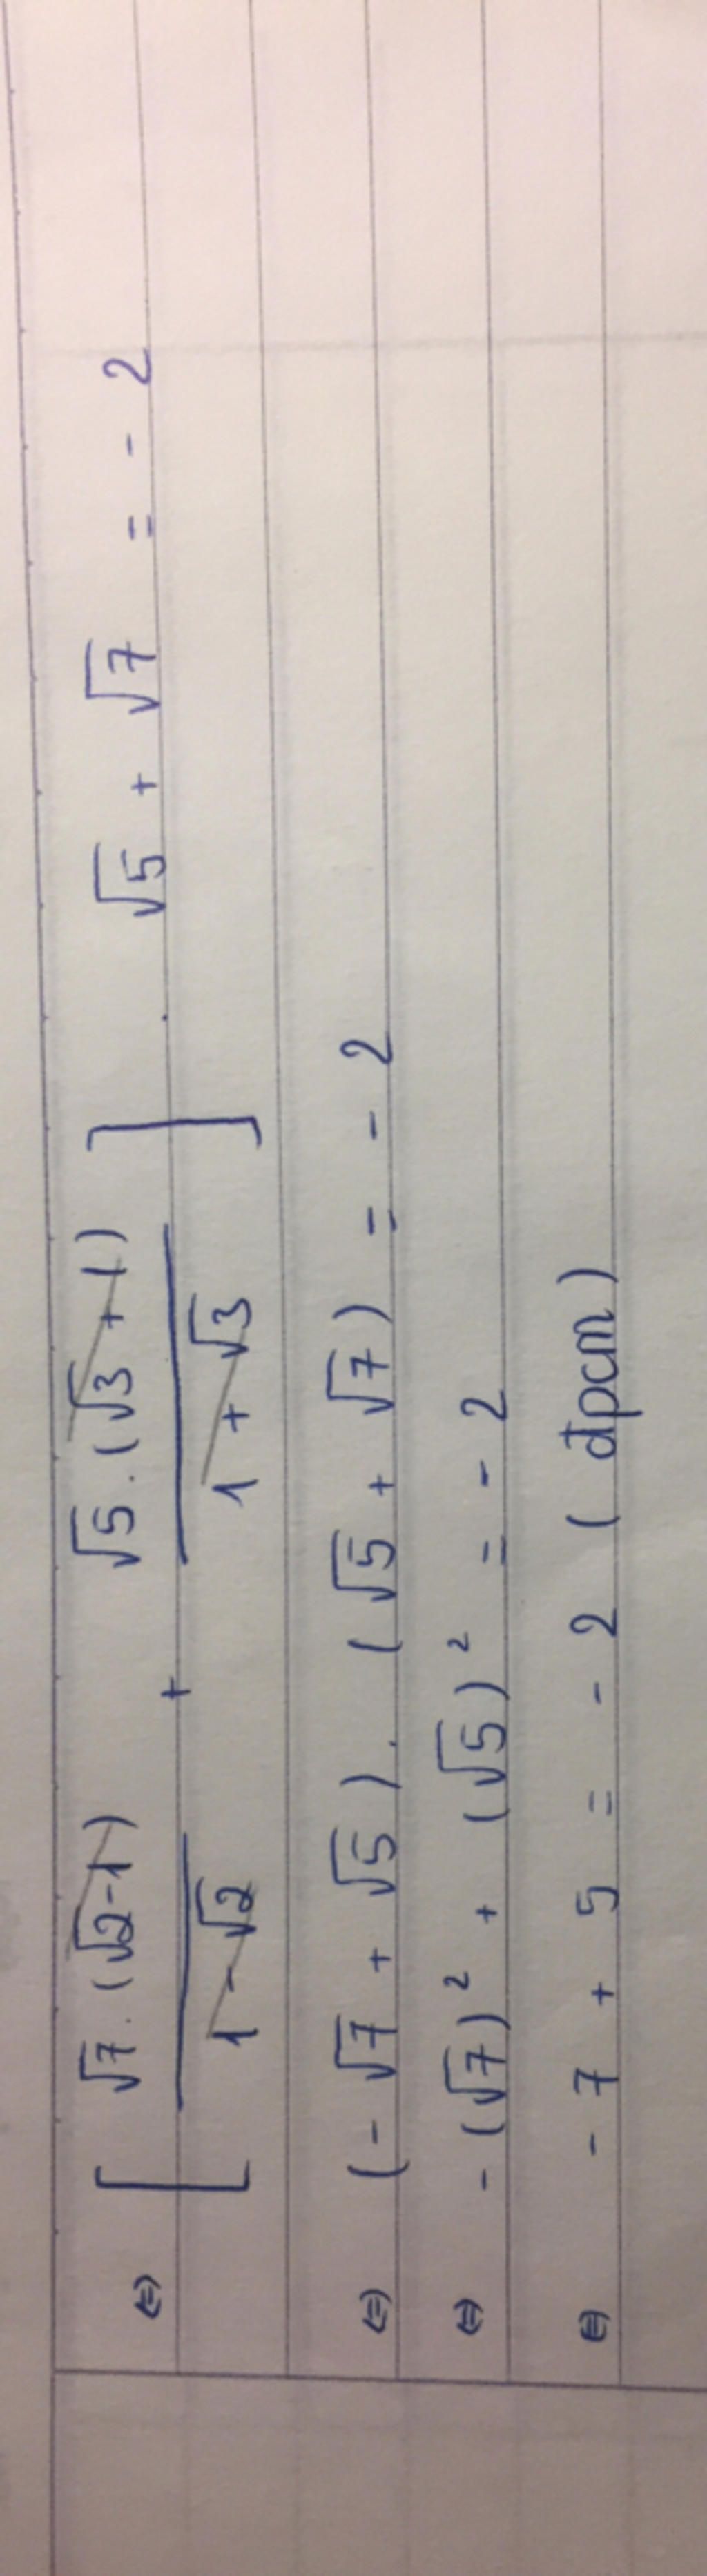 ⇔ [ √7.(√2-1) / 1-√2 + √5.(√3+1) / 1+√3 ] . √5 + √7 = -2
⇔ (-√7 + √5) . (√5 + √7) = -2
⇔ -(√7)² + (√5)² = -2
⇔ -7 + 5 = -2 (đpcm)